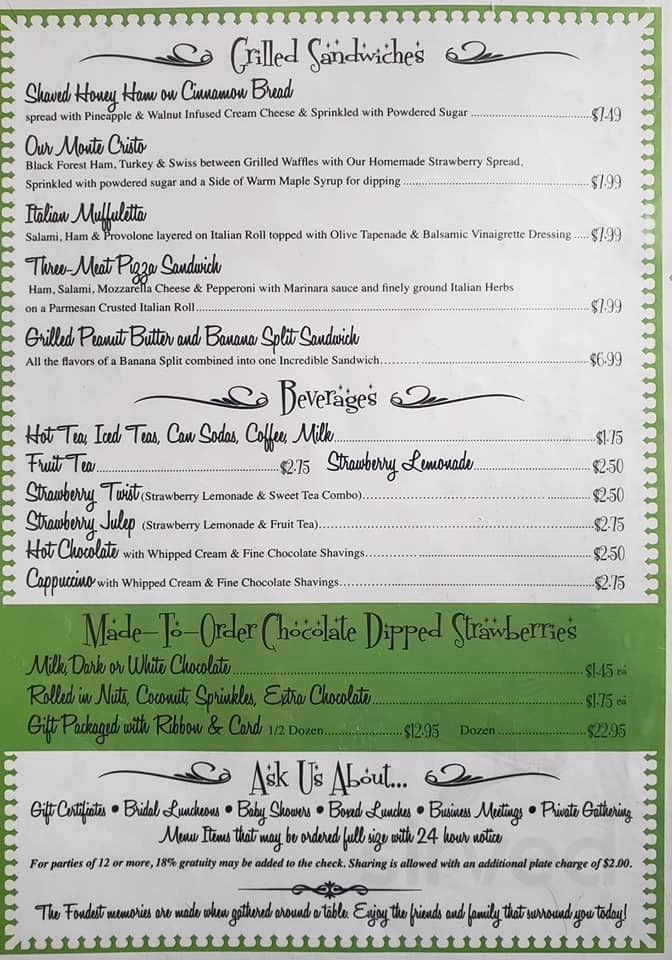 Grilled Sandwiches
Shaved Honey Ham on Cinnamon Bread
spread with Pineapple & Walnut Infused Cream Cheese & Sprinkled with Powdered Sugar ........ $7.49
Our Monte Cristo
Black Forest Ham, Turkey & Swiss between Grilled Waffles with Our Homemade Strawberry Spread,
Sprinkled with powdered sugar and a Side of Warm Maple Syrup for dipping ........ $7.99
Italian Muffuletta
Salami, Ham & Provolone layered on Italian Roll topped with Olive Tapenade & Balsamic Vinaigrette Dressing ..... $7.99
Three-Meat Pizza Sandwich
Ham, Salami, Mozzarella Cheese & Pepperoni with Marinara sauce and finely ground Italian Herbs
on a Parmesan Crusted Italian Roll ........ $7.99
Grilled Peanut Butter and Banana Split Sandwich
All the flavors of a Banana Split combined into one Incredible Sandwich ........ $6.99
Beverages
Hot Tea, Iced Teas, Can Sodas, Coffee, Milk ........ $1.75
Fruit Tea ........ $2.75 Strawberry Lemonade ........ $2.50
Strawberry Twist (Strawberry Lemonade & Sweet Tea Combo) ........ $2.50
Strawberry Julep (Strawberry Lemonade & Fruit Tea) ........ $2.75
Hot Chocolate with Whipped Cream & Fine Chocolate Shavings ........ $2.50
Cappuccino with Whipped Cream & Fine Chocolate Shavings ........ $2.75
Made-To-Order Chocolate Dipped Strawberries
Milk, Dark or White Chocolate ........ $1.45 ea
Rolled in Nuts, Coconut, Sprinkles, Extra Chocolate ........ $1.75 ea
Gift Packaged with Ribbon & Card 1/2 Dozen ........ $12.95 Dozen ........ $22.95
Ask Us About...
Gift Certifiates • Bridal Luncheons • Baby Showers • Boxed Lunches • Business Meetings • Private Gathering
Menu Items that may be ordered full size with 24 hour notice
For parties of 12 or more, 18% gratuity may be added to the check. Sharing is allowed with an additional plate charge of $2.00.
The Fondest memories are made when gathered around a table. Enjoy the friends and family that surround you today!
sirved